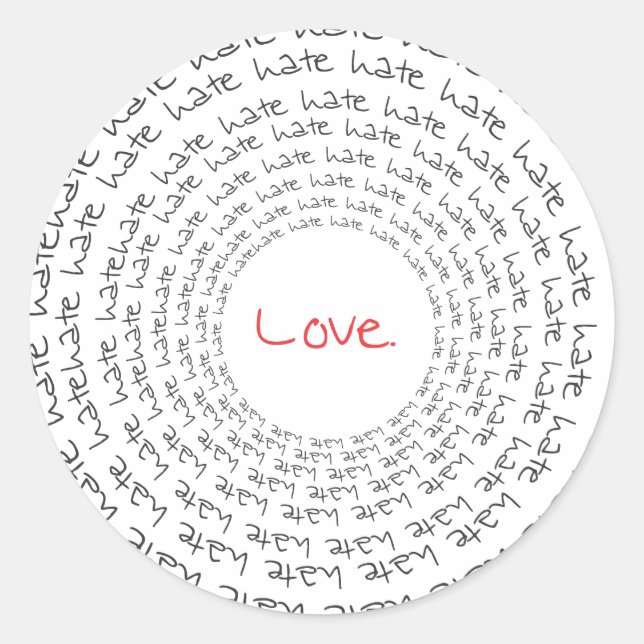 hate hate hate hate hate hate hate hate hate hate hate hate hate hate hate hate hate
hate hate hate hate hate hate hate hate hate hate hate hate hate hate hate hate hate
hate hate hate hate hate hate hate hate hate hate hate hate hate hate hate hate hate
hate hate hate hate hate hate hate hate hate hate hate hate hate hate hate hate hate
hate hate hate hate hate hate hate hate hate hate hate hate hate hate hate hate hate
hate hate hate hate hate hate hate hate hate hate hate hate hate hate hate hate hate
hate hate hate hate hate hate hate hate hate hate hate hate hate hate hate hate hate
Love.